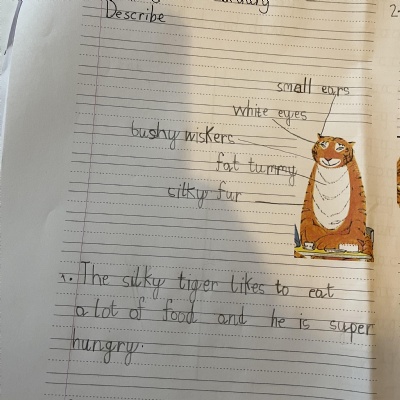 Describe
2-
small ears
white eyes
bushy wiskers
fat tummy
silky fur
1. The silky tiger likes to eat
a lot of food and he is super
hungry.